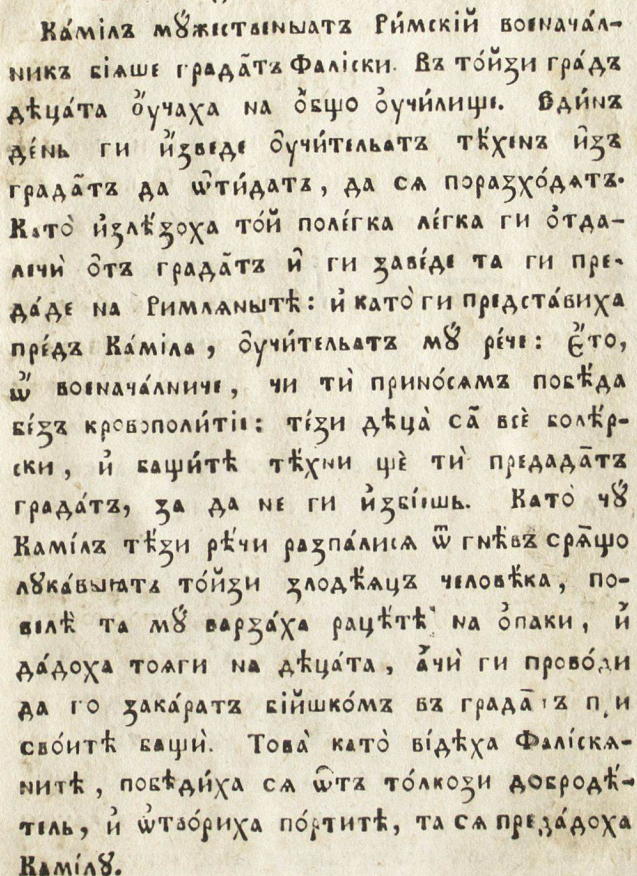 Ка́мілъ мꙋ́жественыатъ Ри́мскій военача́л-
никъ бі́яше града̑тъ Фалі́ски. Въ то́йзи гра́дъ
дѣца́та ѹ҆́чаха на о҆́бщо ѹ҆чи́лище. Еди́нъ
де́нь ги и҆́зведе ѹ҆чи́тельатъ тѣ́хенъ и҆зъ
града̑тъ да ѿти́датъ, да ся поразхо́дятъ.
Като̀ и҆злѣ́зоха то́й поле́гка ле́гка ги о҆тда-
лечѝ о҆тъ града̑тъ и҆ ги заве́де та ги пре-
да́де на Римлянытѣ: и҆ като̀ ги предста́виха
пре́дъ Ка́міла, ѹ҆чи́тельатъ мꙋ̀ ре́че: є҆́то,
ѽ военача́лниче, чи тѝ прино́сямъ побѣ́да
бе́зъ кровополи́тіе: те́зи дѣца̀ са̑ всѐ болѣ́р-
ски, и҆ бащи́тѣ тѣ́хни щѐ тѝ предада̑тъ
града́тъ, за да не ги и҆збі́ешь. Като̀ чꙋ̀
Камі́лъ тѣ́зи рѣ́чи разпа́лися ѿ гнѣ́въ сря̑що
лꙋка́выатъ то́йзи злодѣ́яцъ человѣ́ка, по-
велѐ та мꙋ̀ варза́ха рацѣ́тѣ на о҆́паки, и҆
да́доха тояги на дѣца́та, а҆́чи ги прово́ди
да го зака́ратъ бійшко́мъ въ града̑тъ при
сво́итѣ бащѝ. Това̀ като̀ ві́дѣха Фалі́скя-
нитѣ, побѣди́ха ся ѿтъ то́лкози добродѣ́-
тель, и҆ ѿтво́риха по́ртитѣ, та ся преза́доха
Камі́лꙋ.